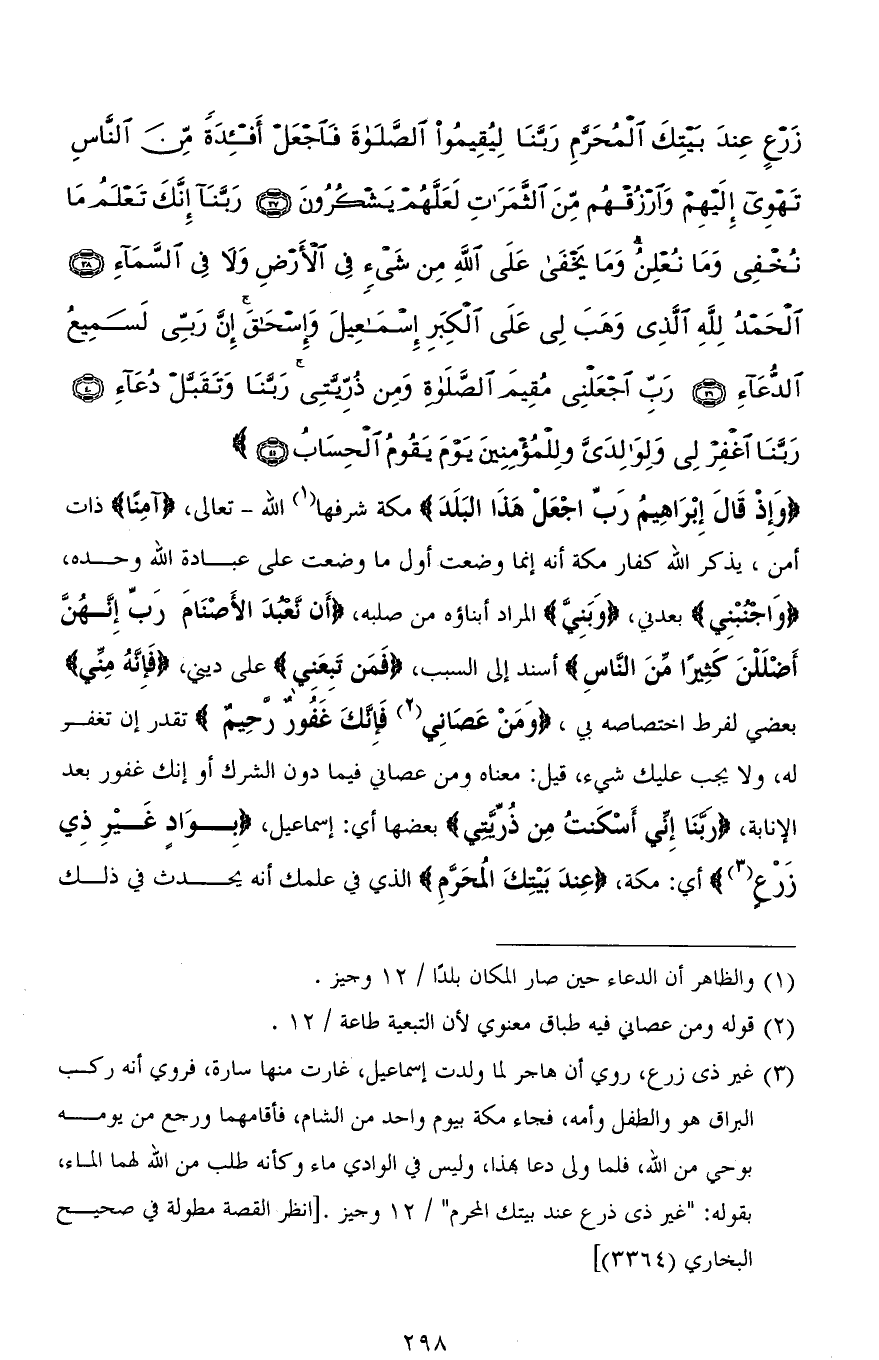 زَرْعٍ عِندَ بَيْتِكَ ٱلْمُحَرَّمِ رَبَّنَا لِيُقِيمُوا۟ ٱلصَّلَوٰةَ فَٱجْعَلْ أَفْـِٔدَةً مِّنَ ٱلنَّاسِ
تَهْوِىٓ إِلَيْهِمْ وَٱرْزُقْهُم مِّنَ ٱلثَّمَرَٰتِ لَعَلَّهُمْ يَشْكُرُونَ ٣٧ رَبَّنَآ إِنَّكَ تَعْلَمُ مَا
نُخْفِى وَمَا نُعْلِنُ ۗ وَمَا يَخْفَىٰ عَلَى ٱللَّهِ مِن شَىْءٍ فِى ٱلْأَرْضِ وَلَا فِى ٱلسَّمَآءِ ٣٨
ٱلْحَمْدُ لِلَّهِ ٱلَّذِى وَهَبَ لِى عَلَى ٱلْكِبَرِ إِسْمَٰعِيلَ وَإِسْحَٰقَ ۚ إِنَّ رَبِّى لَسَمِيعُ
ٱلدُّعَآءِ ٣٩ رَبِّ ٱجْعَلْنِى مُقِيمَ ٱلصَّلَوٰةِ وَمِن ذُرِّيَّتِى ۚ رَبَّنَا وَتَقَبَّلْ دُعَآءِ ٤٠
رَبَّنَا ٱغْفِرْ لِى وَلِوَٰلِدَىَّ وَلِلْمُؤْمِنِينَ يَوْمَ يَقُومُ ٱلْحِسَابُ ٤١ ﴾
﴿وَإِذْ قَالَ إِبْرَاهِيمُ رَبِّ اجْعَلْ هَذَا البَلَدَ﴾ مكة شرفها(١) الله - تعالى، ﴿آمِنًا﴾ ذات
أمن ، يذكر الله كفار مكة أنه إنما وضعت أول ما وضعت على عبادة الله وحده،
﴿وَاجْنُبْنِي﴾ بعدني، ﴿وَبَنِيَّ﴾ المراد أبناؤه من صلبه، ﴿أَن نَّعْبُدَ الأَصْنَامَ رَبِّ إِنَّهُنَّ
أَضْلَلْنَ كَثِيرًا مِّنَ النَّاسِ﴾ أسند إلى السبب، ﴿فَمَن تَبِعَنِي﴾ على ديني، ﴿فَإِنَّهُ مِنِّي﴾
بعضي لفرط اختصاصه بي ، ﴿وَمَنْ عَصَانِي(٢) فَإِنَّكَ غَفُورٌ رَّحِيمٌ ﴾ تقدر إن تغفر
له، ولا يجب عليك شيء، قيل: معناه ومن عصاني فيما دون الشرك أو إنك غفور بعد
الإنابة، ﴿رَبَّنَا إِنِّي أَسْكَنتُ مِن ذُرِّيَّتِي﴾ بعضها أي: إسماعيل، ﴿بِوَادٍ غَيْرِ ذِي
زَرْعٍ(٣)﴾ أي: مكة، ﴿عِندَ بَيْتِكَ الْمُحَرَّمِ﴾ الذي في علمك أنه يحدث في ذلك
(١) والظاهر أن الدعاء حين صار المكان بلدًا / ١٢ وجيز .
(٢) قوله ومن عصاني فيه طباق معنوي لأن التبعية طاعة / ١٢ .
(٣) غير ذى زرع، روي أن هاجر لما ولدت إسماعيل، غارت منها سارة، فروي أنه ركب
البراق هو والطفل وأمه، فجاء مكة بيوم واحد من الشام، فأقامهما ورجع من يومه
بوحي من الله، فلما ولى دعا بهذا، وليس في الوادي ماء وكأنه طلب من الله لهما الماء،
بقوله: "غير ذى ذرع عند بيتك المحرم" / ١٢ وجيز .[انظر القصة مطولة في صحيح
البخاري (٣٣٦٤)]
٢٩٨